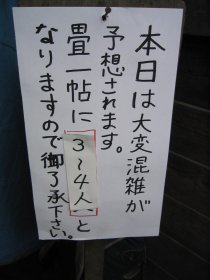 本日は大変混雑が
予想されます。
畳一帖に３～４人、と
なりますので御了承下さい。